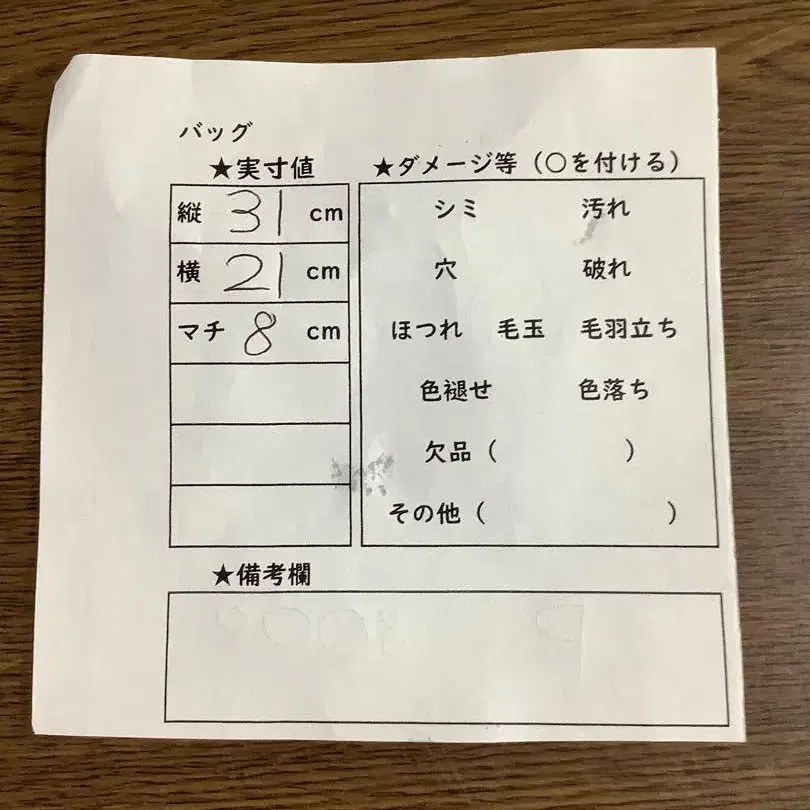 バッグ
★実寸値
縦 31 cm
横 21 cm
マチ 8 cm
★ダメージ等（○を付ける）
シミ 汚れ
穴 破れ
ほつれ 毛玉 毛羽立ち
色褪せ 色落ち
欠品（ ）
その他（ ）
★備考欄